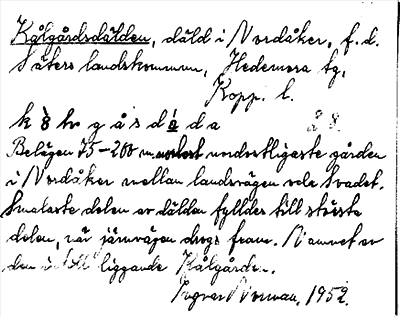 Kålgårdsdälden, däld i Nordåker, f.d.
Säters landskommun, Hedemora tg,
Kopp. l.
Belägen 75-200 m nordost nordostligaste gården
i Nordåker mellan landsvägen och Svadet.
Smalaste delen av dälden fylldes till största
delen, när järnvägen drogs fram. Namnet av
den liggande Kålgården.
Ingvar Norman, 1952.